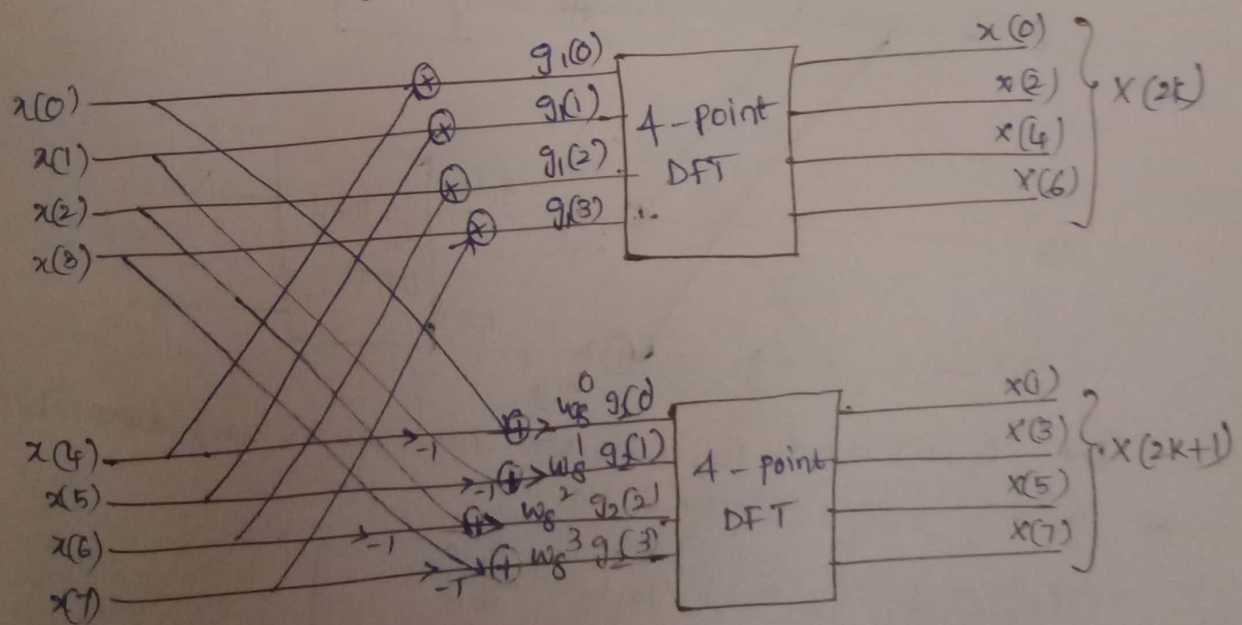 x(0)
x(1)
x(2)
x(3)
g₁(0)
g₁(1)
g₁(2)
g₁(3)
4-point
DFT
x(0)
x(2)
x(4)
X(6)
X(2k)
x(4)
x(5)
x(6)
x(7)
-1
-1
-1
-1
w₈⁰ g₂(0)
w₈¹ g₂(1)
w₈² g₂(2)
w₈³ g₂(3)
4-point
DFT
x(1)
X(3)
x(5)
X(7)
X(2k+1)